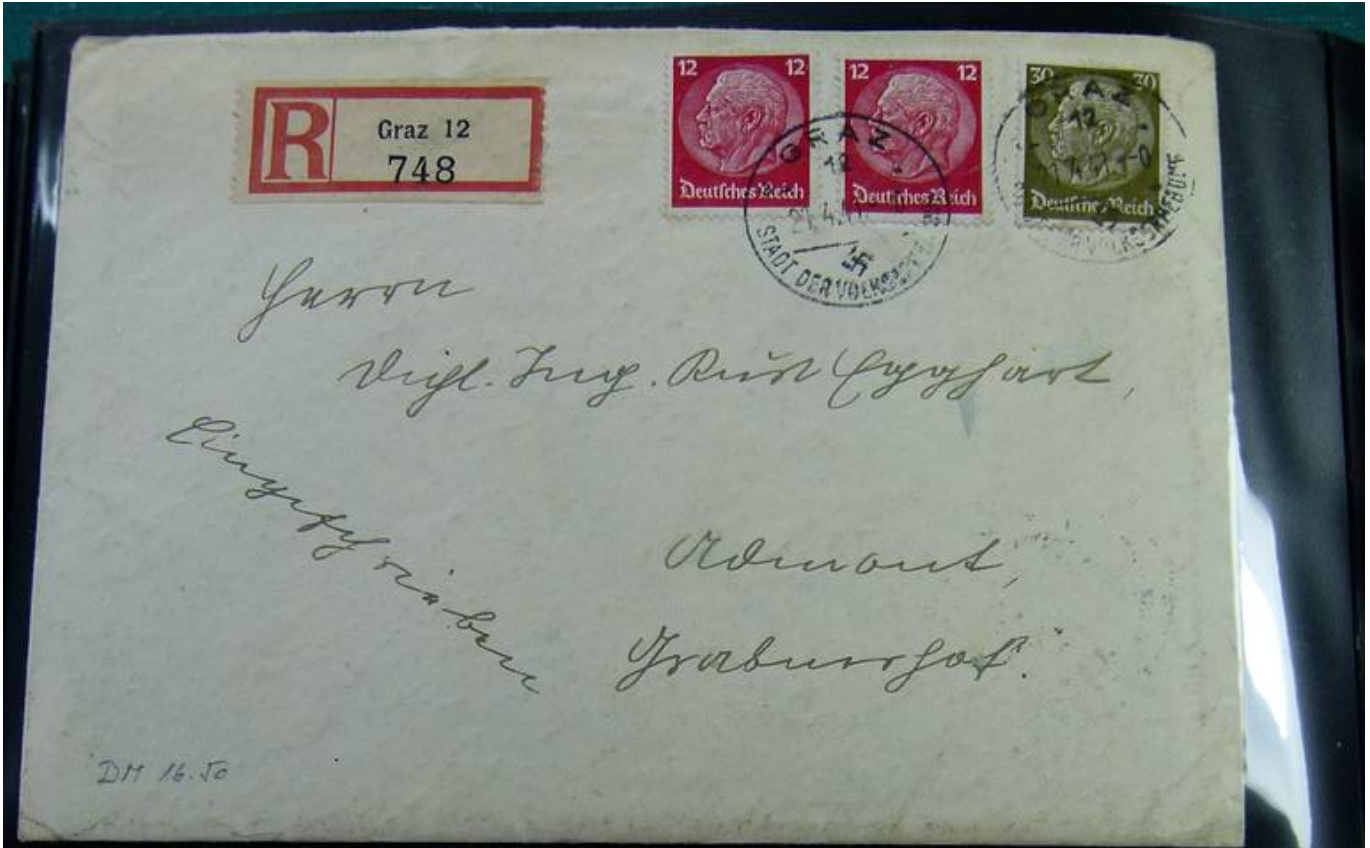 R Graz 12
748
12 12
Deutsches Reich
12 12
Deutsches Reich
30 30
Deutsches Reich
GRAZ
12
STADT DER VOLKSERHEBUNG
GRAZ
12
Herrn
Dipl. Ing. Kurt Egghart,
Eingeschrieben
Admont,
Grabnerhof.
DM 16.50